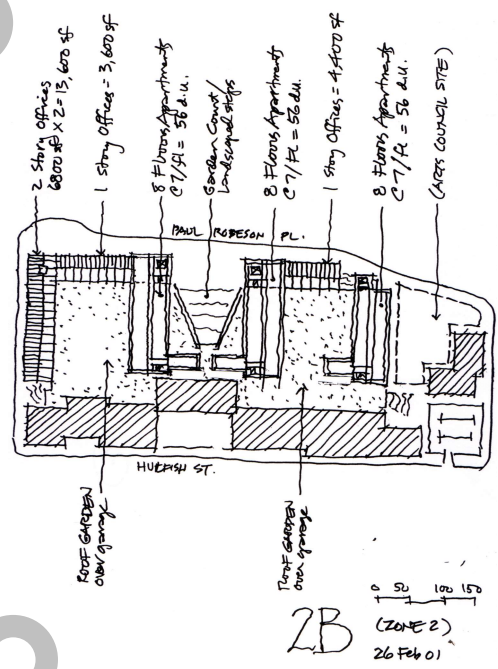 2 Story Offices
6800 sf X 2 = 13,600 sf
1 Story Offices = 3,600 sf
8 Floors Apartments
@ 7/fl = 56 d.u.
Garden Court/
landscaped steps
8 Floors Apartments
@ 7/FL = 56 d.u.
1 Story Offices = 4,400 sf
8 Floors Apartments
@ 7/FL = 56 d.u.
(ARTS COUNCIL SITE)
PAUL ROBESON PL.
HULFISH ST.
ROOF GARDEN
over garage
ROOF GARDEN
over garage
2B
0 50 100 150
(ZONE 2)
26 Feb 01